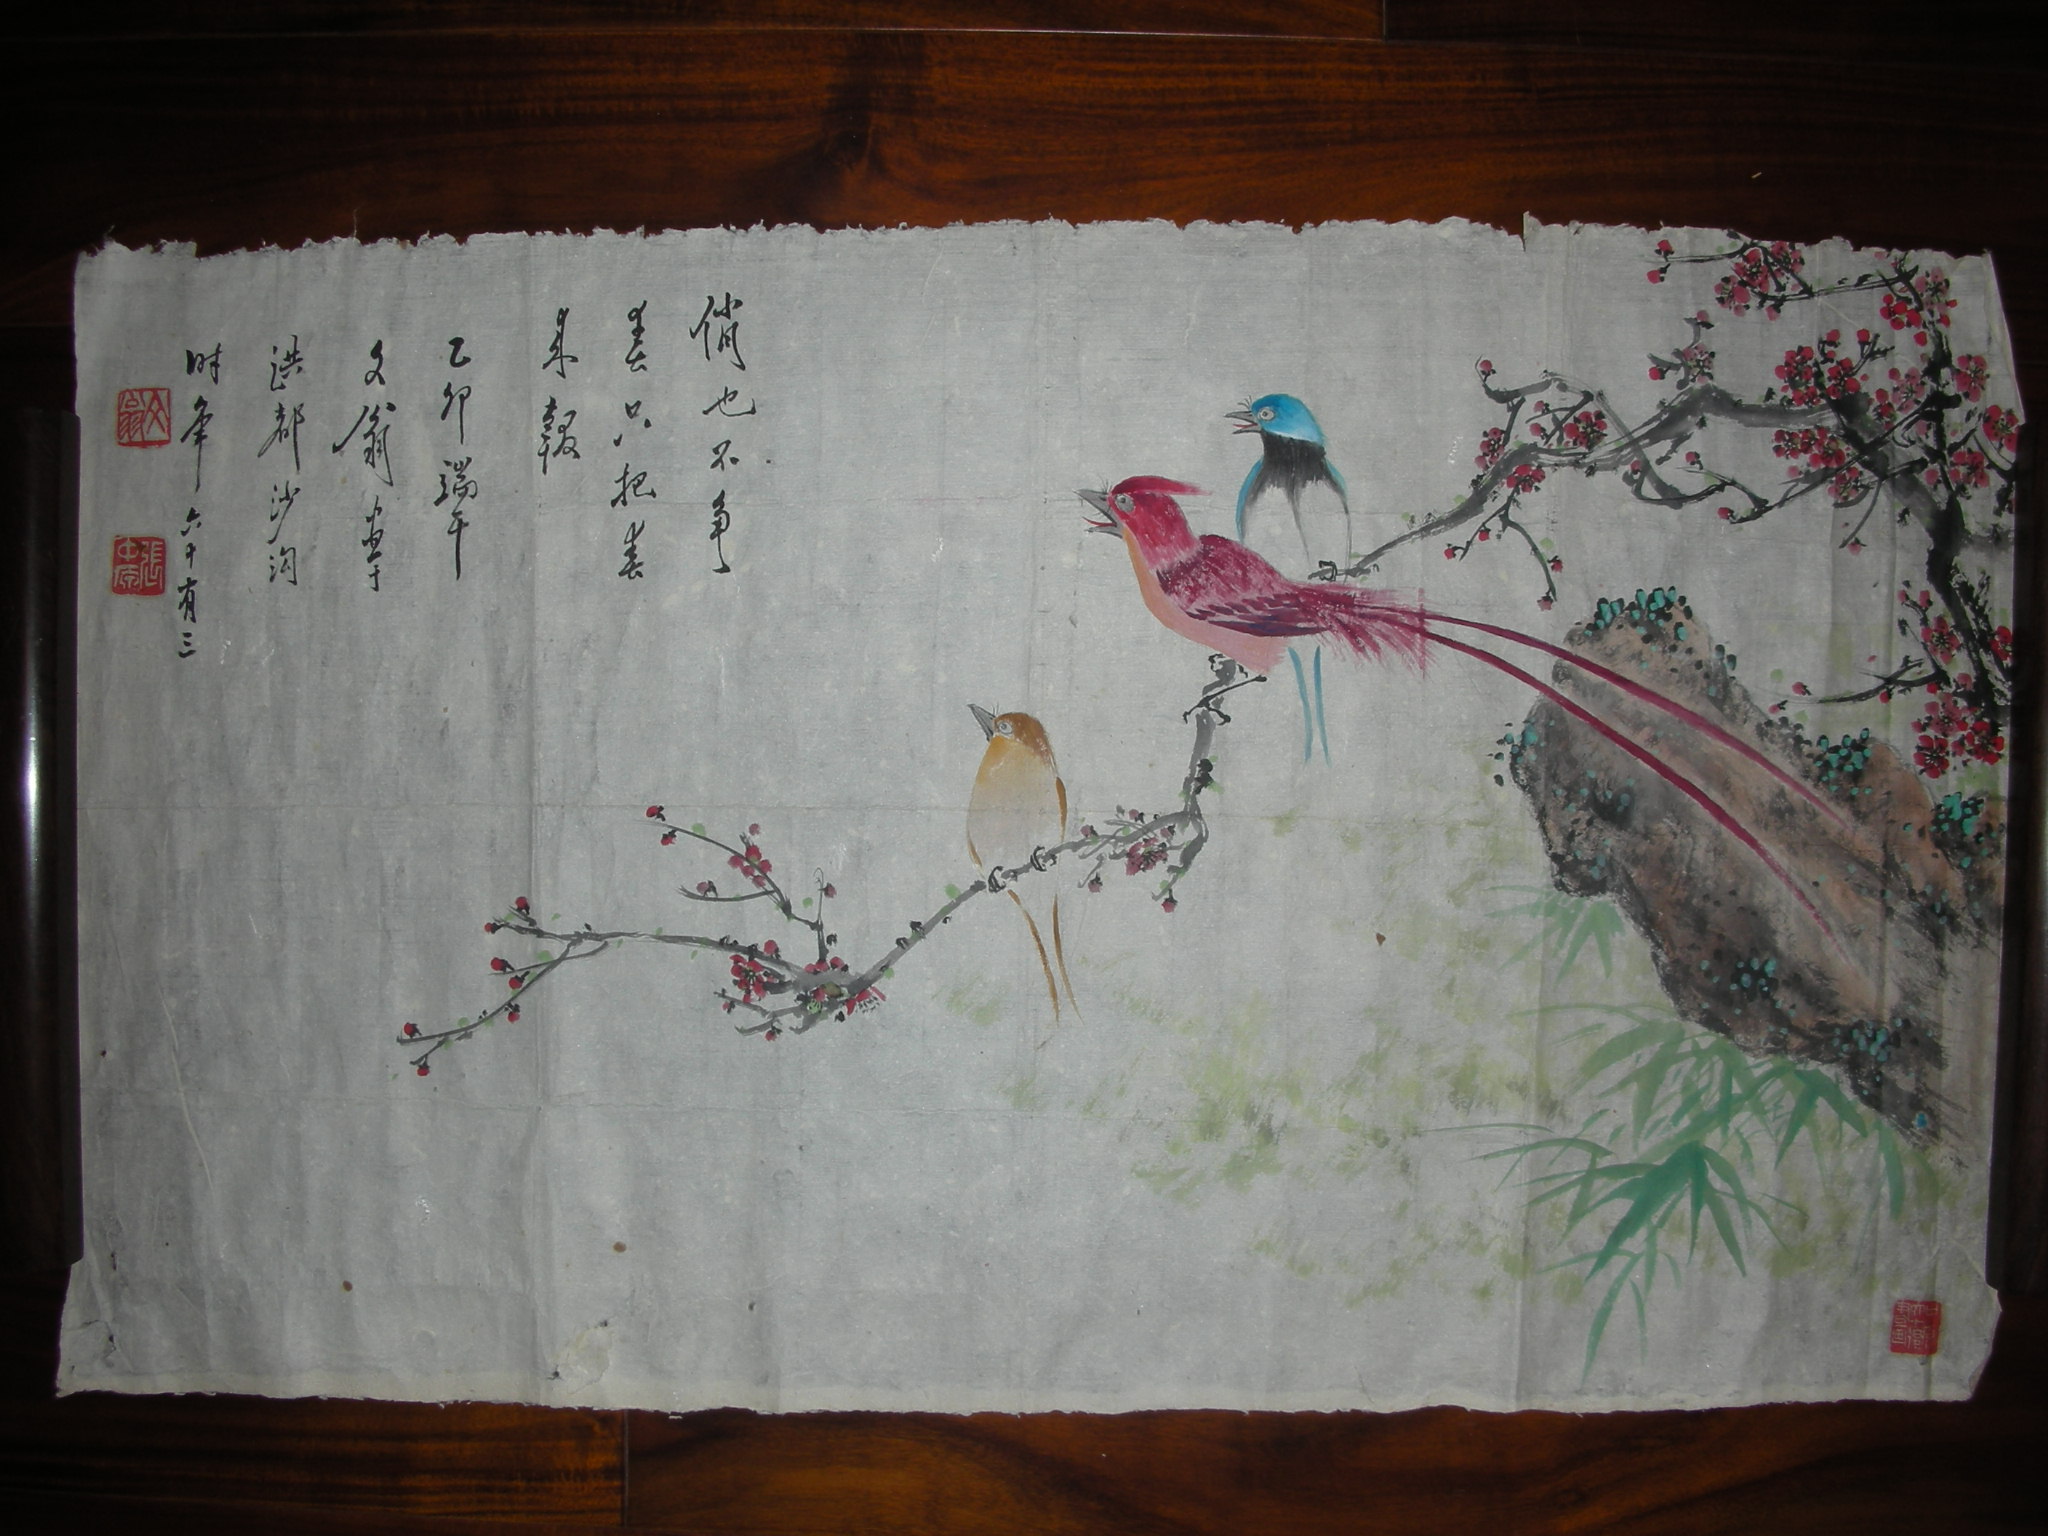 俏也不争
春只把春
来报
乙卯端午
文翁画于
洪都沙沟
时年六十有三
文翁